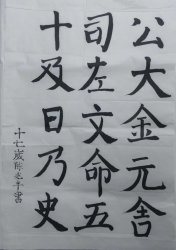 公大金元舍
司左文命五
十及日乃史
十七岁陈书